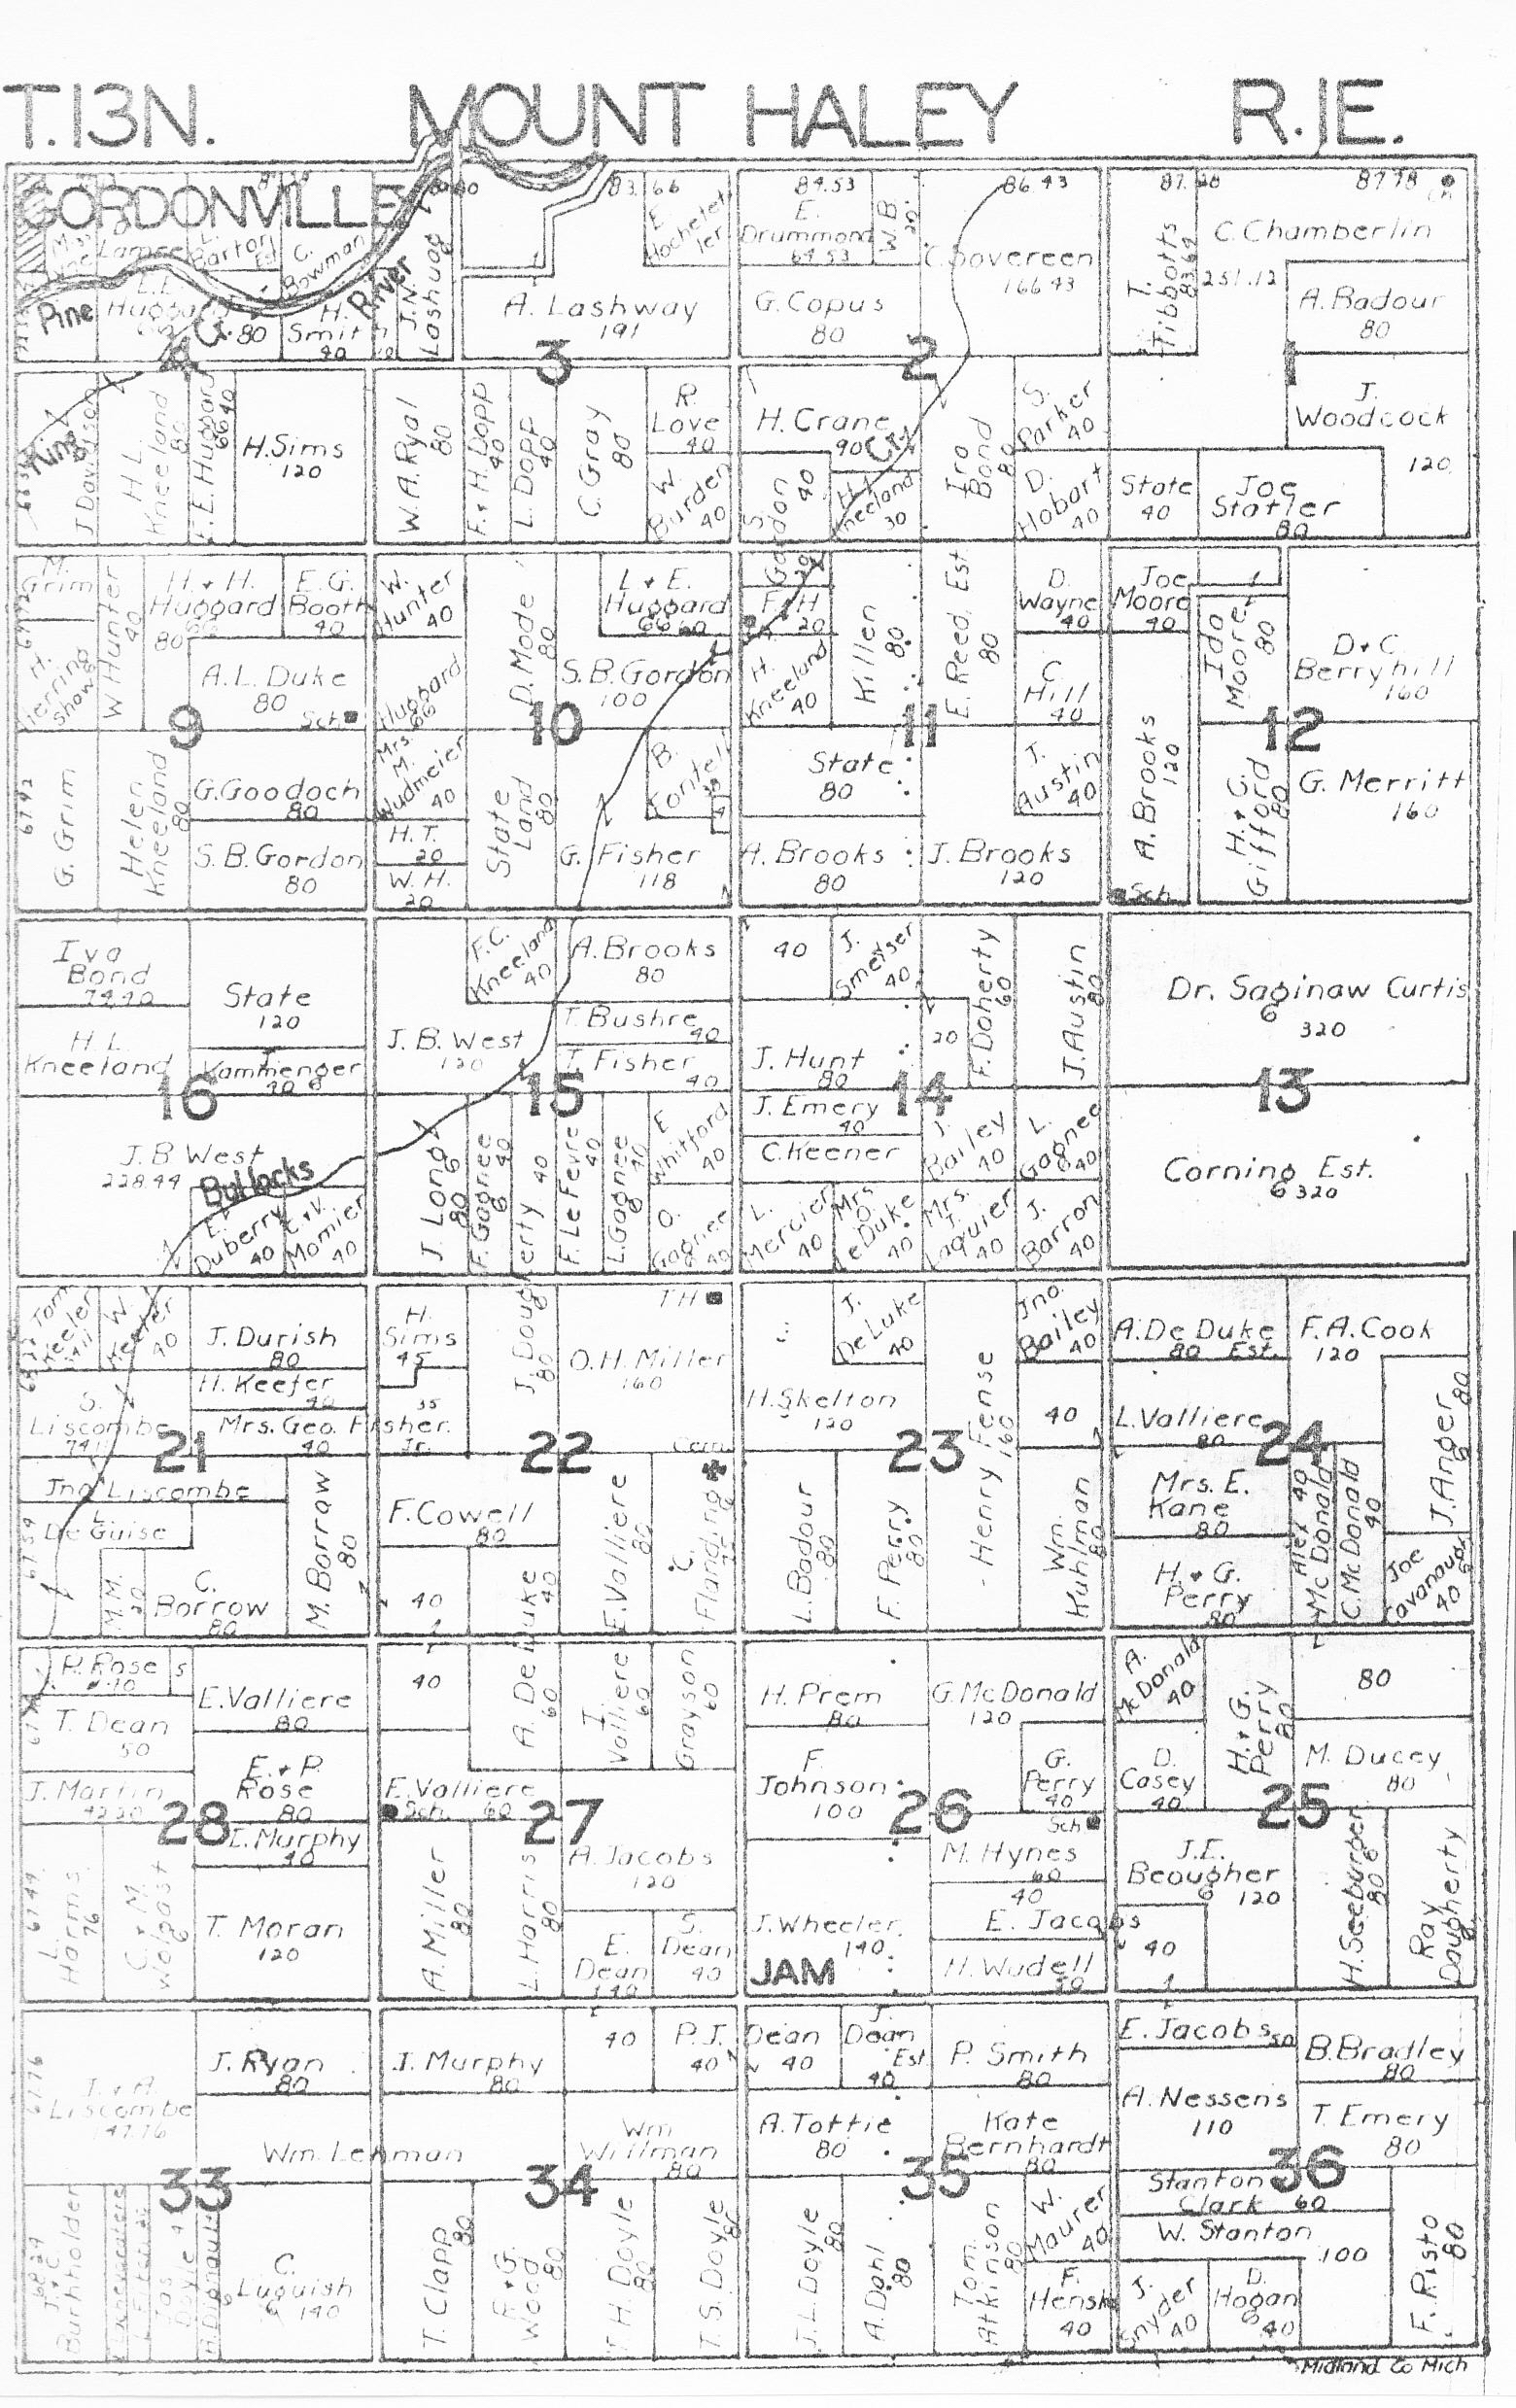 T.13N.
MOUNT HALEY
R.1E.
GORDONVILLE
83.66
84.53
86.43
87.28
87.78
Lamee
Barton
Est
C.
Bowman
Pine
River
Cr.
80
H.
Smith
40
J.N.
Lashuag
E.
Hochstet
ler
A. Lashway
191
3
E.
Drummond
64.53
W.B
20
G. Copus
80
2
C. Sovereen
166.43
T.
Tibbotts
83.64
C. Chamberlin
251.12
A. Badour
80
1
4
King
J. Davidson
H L
Kneeland
80
E.E. Huggard
66.40
H. Sims
120
W.A. Ryal
80
F. & H. Dopp
40
L. Dopp
40
C. Gray
80
R.
Love
40
W.
Burden
40
H. Crane
90
Cr.
S.
Gordon
40
H.
Kneeland
30
Ira
Bond
80
S.
Parker
40
D.
Hobart
40
State
40
Joe
Statler
80
J.
Woodcock
120
M.
Grim
H.
Herring
show
W Hunter
40
H. & H.
Huggard
80
E. G.
Booth
40
A. L. Duke
80
Sch.
9
G. Grim
67.42
Helen
Kneeland
80
G. Goodoch
80
S. B. Gordon
80
W.
Hunter
40
Huggard
66
Mrs.
M.
Wudmeier
40
H. T.
20
W. H.
20
D. Mode
80
L & E.
Huggard
66 60
S. B. Gordon
100
10
State
Land
80
B.
Fontell
38
G. Fisher
118
20
F. H
20
H.
Kneeland
40
Killen
80
E. Reed. Est
80
D.
Wayne
40
C
Hill
40
11
State
80
J.
Austin
40
A. Brooks
80
J. Brooks
120
Joe
Moore
40
Ida
Moore
80
D & C.
Berryhill
160
A. Brooks
120
12
H. & C.
Gifford
80
G. Merritt
160
Sch.
Iva
Bond
74.40
State
120
H L.
Kneeland
Kammenger
16
J. B West
228.44
Bullocks
E.
Duberry
40
C. & V.
Momier
40
F. C.
Kneeland
40
A. Brooks
80
J. B. West
120
T. Bushre
40
T. Fisher
40
15
J. Long
80
F. Gagnee
40
J. Dougherty 40
80
F. LeFevre
40
L. Gagnee
40
E
Whitford
40
O.
Gagnee
40
40
J.
Smelser
40
J. Hunt
80
20
F. Doherty
60
J. Austin
80
14
J. Emery
40
C. Keener
J.
Bailey
40
L.
Gagnee
40
L.
Mercier
40
Mrs.
O.
LeDuke
40
Mrs.
J.
Laquier
40
J.
Barron
40
Dr. Saginaw Curtis
320
13
Corning Est.
320
Tom
Keeler
W.
Keefer
40
J. Durish
80
H. Keefer
40
S.
Liscombe
Mrs. Geo. Fisher.
40
Jr.
21
Jno Liscombe
L.
De Guise
M. M.
20
C.
Borrow
80
M. Borraw
80
H.
Sims
45
35
O. H. Miller
160
T H
Cem.
22
F. Cowell
80
40
A. De Duke 40
60
E. Valliere
80
C.
Flanding
J.
DeLuke
40
Jno.
Bailey
40
H. Skelton
120
Henry Fense
160
40
23
L. Badour
80
F. Perry
80
Wm.
Kuhlman
80
A. De Duke
80 Est.
F. A. Cook
120
L. Valliere
80
24
J. Anger
80
Mrs. E.
Kane
80
Alex 40
McDonald
C. McDonald
40
H. & G.
Perry
80
Joe
Cavanaugh
40
P. Rose
S
T. Dean
50
J. Martin
42.20
E. Valliere
80
E. & P.
Rose
80
28
E. Murphy
40
L
Harms
76
C. & M.
Wolgast
T. Moran
120
40
E. Valliere
60
Sch.
I.
Valliere
60
Grayson
60
27
A. Miller
80
L. Harris
80
A. Jacobs
120
E.
Dean
140
S.
Dean
40
H. Prem
80
G. McDonald
120
F.
Johnson
100
G.
Perry
40
26
Sch
M. Hynes
60
40
E. Jacobs
J. Wheeler
140
JAM
H. Wudell
40
A.
McDonald
40
H. & G.
Perry
80
80
D.
Casey
40
M. Ducey
80
25
J. E.
Beougher
120
H. Seeburger
80
Ray
Daugherty
40
J. Ryan
80
I. & A.
Liscombe
147.76
Wm. Lehman
33
J. & C.
Burhholder
C.
Luguish
140
I. Murphy
80
40
P. J. Dean
40
40
Wm
Willman
80
34
T. Clapp
80
F. & G.
Wood
80
T. H. Doyle
80
T. S. Doyle
80
J.
Dean
Est
40
P. Smith
80
A. Tottie
80
Kate
Bernhardt
80
35
J. L. Doyle
80
A. Dahl
80
Tom.
Atkinson
80
W.
Maurer
40
F.
Hensh
40
E. Jacobs 50
B. Bradley
80
A. Nessens
110
T. Emery
80
36
Stanton
Clark 60
W. Stanton
100
J.
Snyder
40
D.
Hogan
40
F. Risto
80
Midland Co Mich